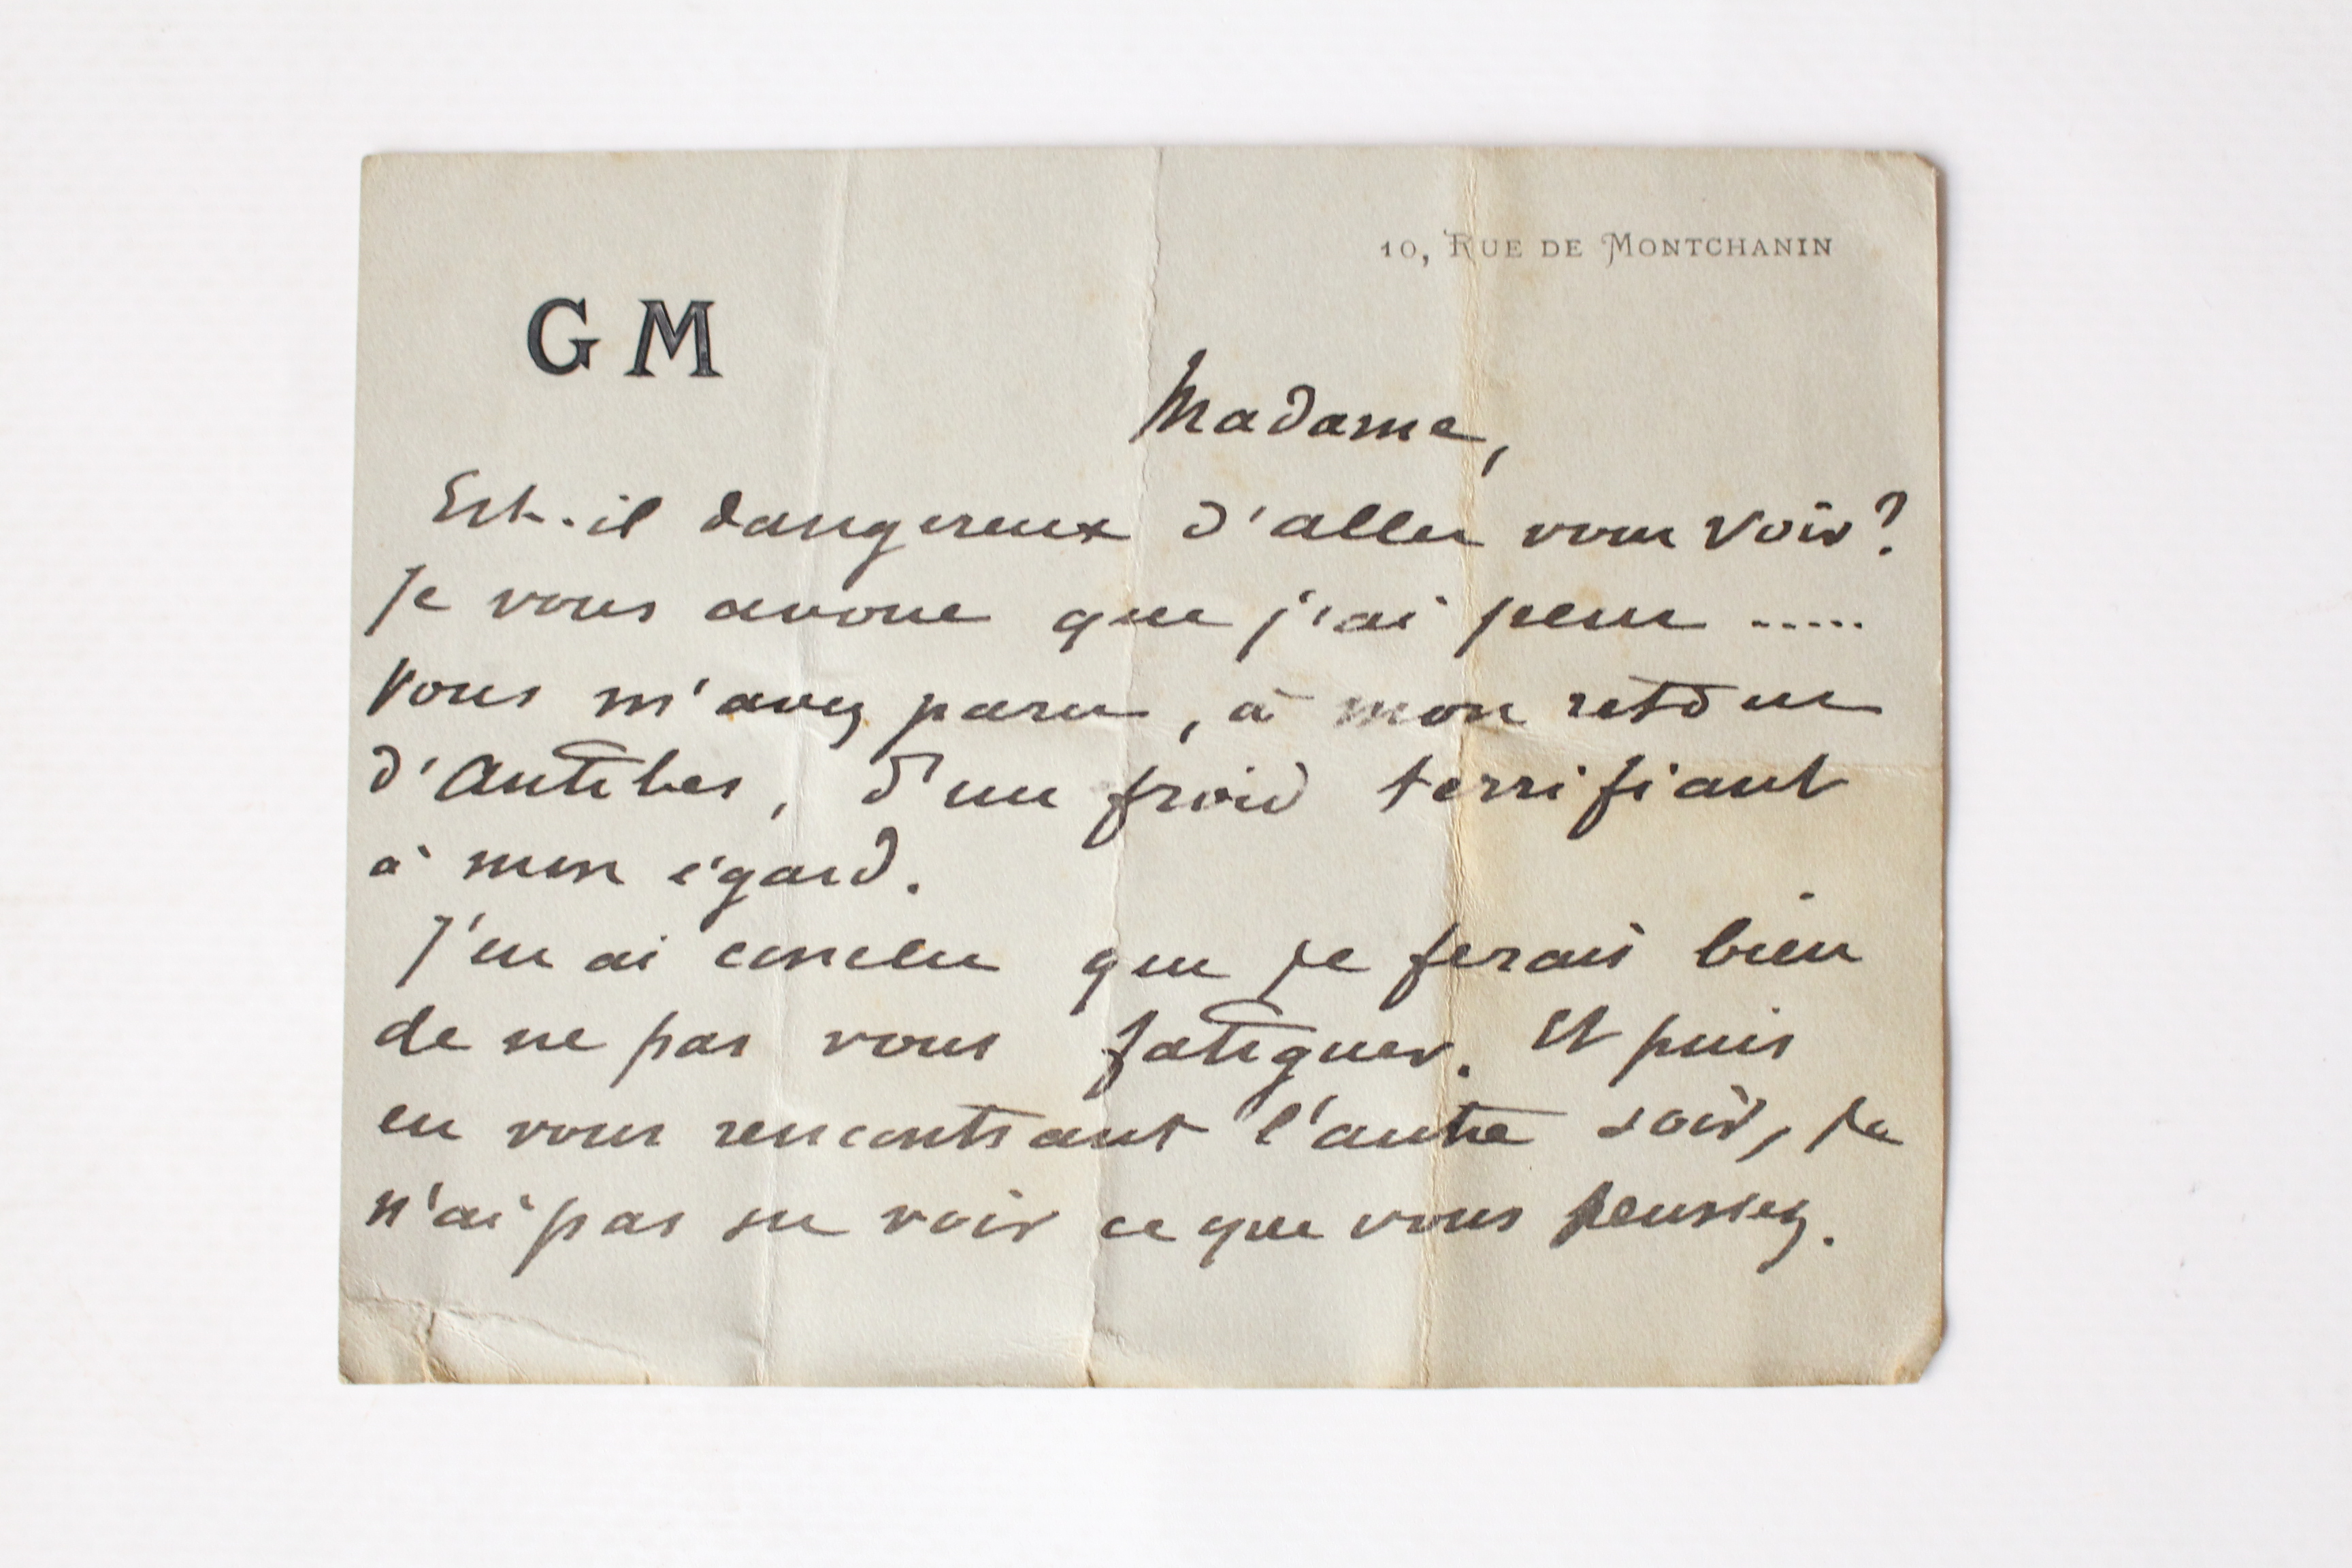 10, RUE DE MONTCHANIN
GM
Madame,
Est-il dangereux d'aller vous voir?
Je vous avoue que j'ai peur .....
Vous m'avez paru, à mon retour
d'Antibes, d'un froid terrifiant
à mon égard.
J'en ai conclu que je ferais bien
de ne pas vous fatiguer. Et puis
en vous rencontrant l'autre soir, je
n'ai pas su voir ce que vous pensiez.